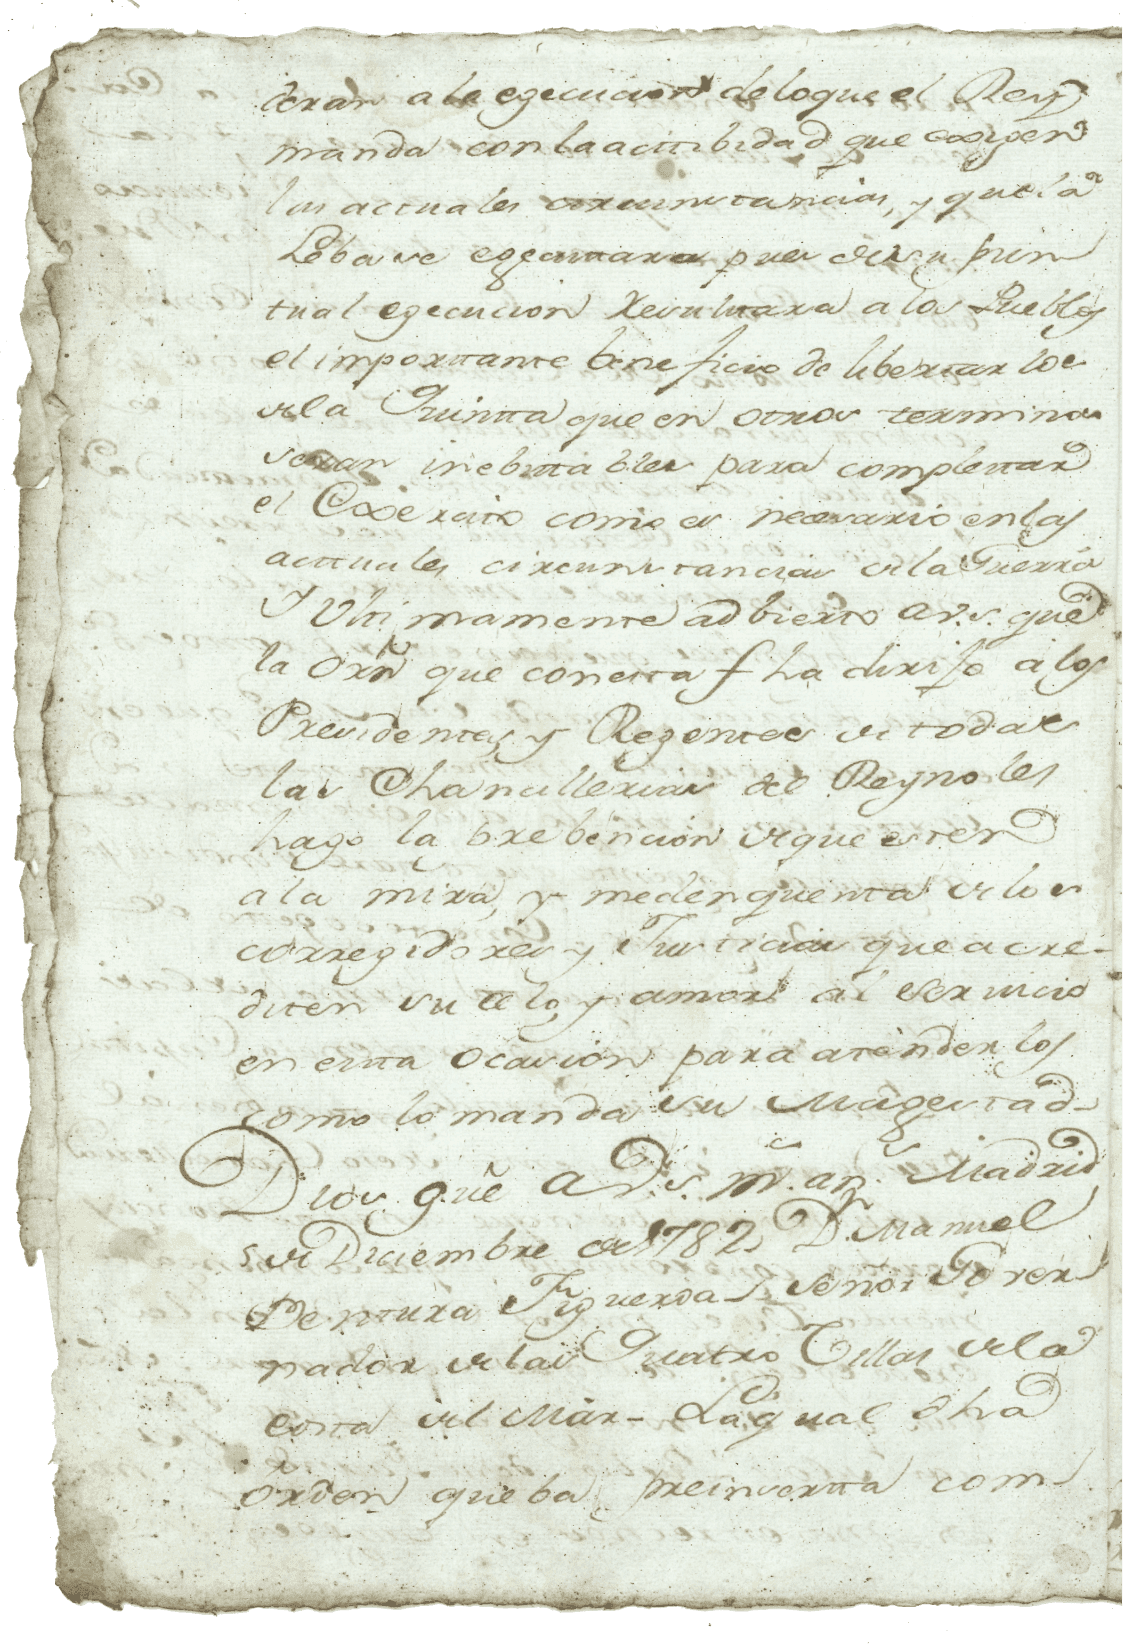 deran a la egecucion de lo que el Rey
manda con la acttibidad que exigen
las actuales circunstancias, y que la
Leba se egecuttara pues de su pun
tual egecucion Resulttara a los Pueblos
el importtante beneficio de liberttarlos
de la Quintta que en otros terminos
seran inebittables para complettar
el Exercito como es necesario en las
acttuales circunstancias de la Guerra
Y Ulttimamente adbierto a V.S. que
la Orñ que con esta fha dirijo a los
Presidentes, y Regentes de todas
las Chancillerias del Reyno les
hago la prebencion de que esten
a la mira, y me den quenta de los
corregidores y Justicias que acre-
diten su celo, y amor al Servicio
en estta ocasion para atenderlos
como lo manda su Magestad-
Dios gũe a V.S. m.s an.s Madrid
5 de Diciembre de 1782, D.n Manuel
Ventura Figueroa, Señor Gover
nador de las Quatro Villas de la
costa del Mar- La qual dha
Orden que ba preinsertta com